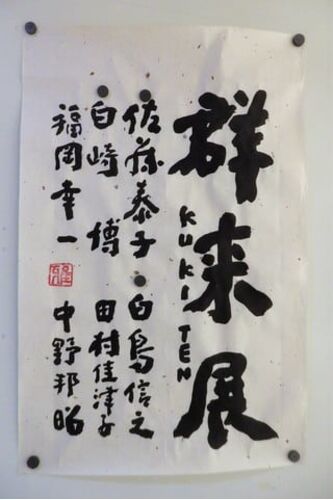 群来展
KUKI TEN
佐藤泰子 白鳥信之
白崎 博 田村佳津子
福岡幸一 中野邦昭